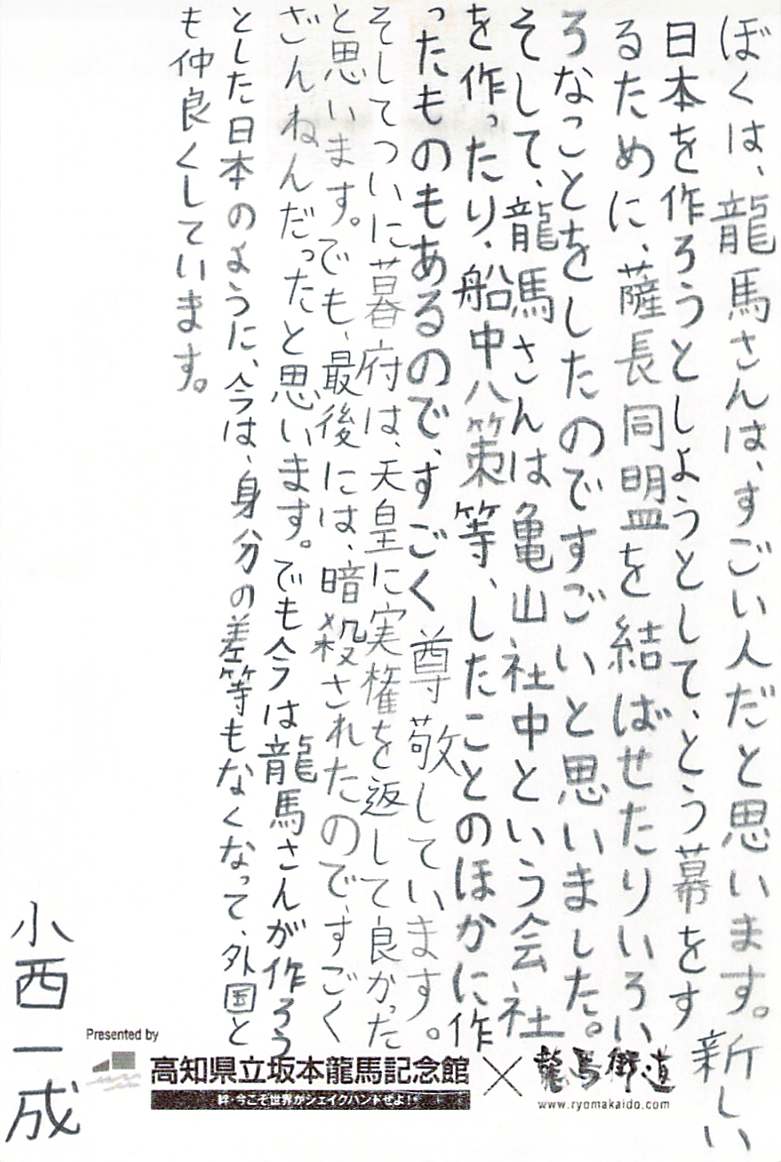 ぼくは、龍馬さんは、すごい人だと思います。新しい
日本を作ろうとしようとして、とう幕をす
るために、薩長同盟を結ばせたりいろい
ろなことをしたのですごいと思いました。
そして、龍馬さんは亀山社中という会社
を作ったり、船中八策等、したことのほかに作
ったものもあるので、すごく尊敬しています。
そしてついに暮府は、天皇に実権を返して良かった
と思います。でも、最後には、暗殺されたので、すごく
ざんねんだったと思います。でも今は龍馬さんが作ろう
とした日本のように、今は、身分の差等もなくなって、外国と
も仲良くしています。
小西一成
Presented by
高知県立坂本龍馬記念館
絆・今こそ世界がシェイクハンドせよ!
×
龍馬街道
www.ryomakaido.com